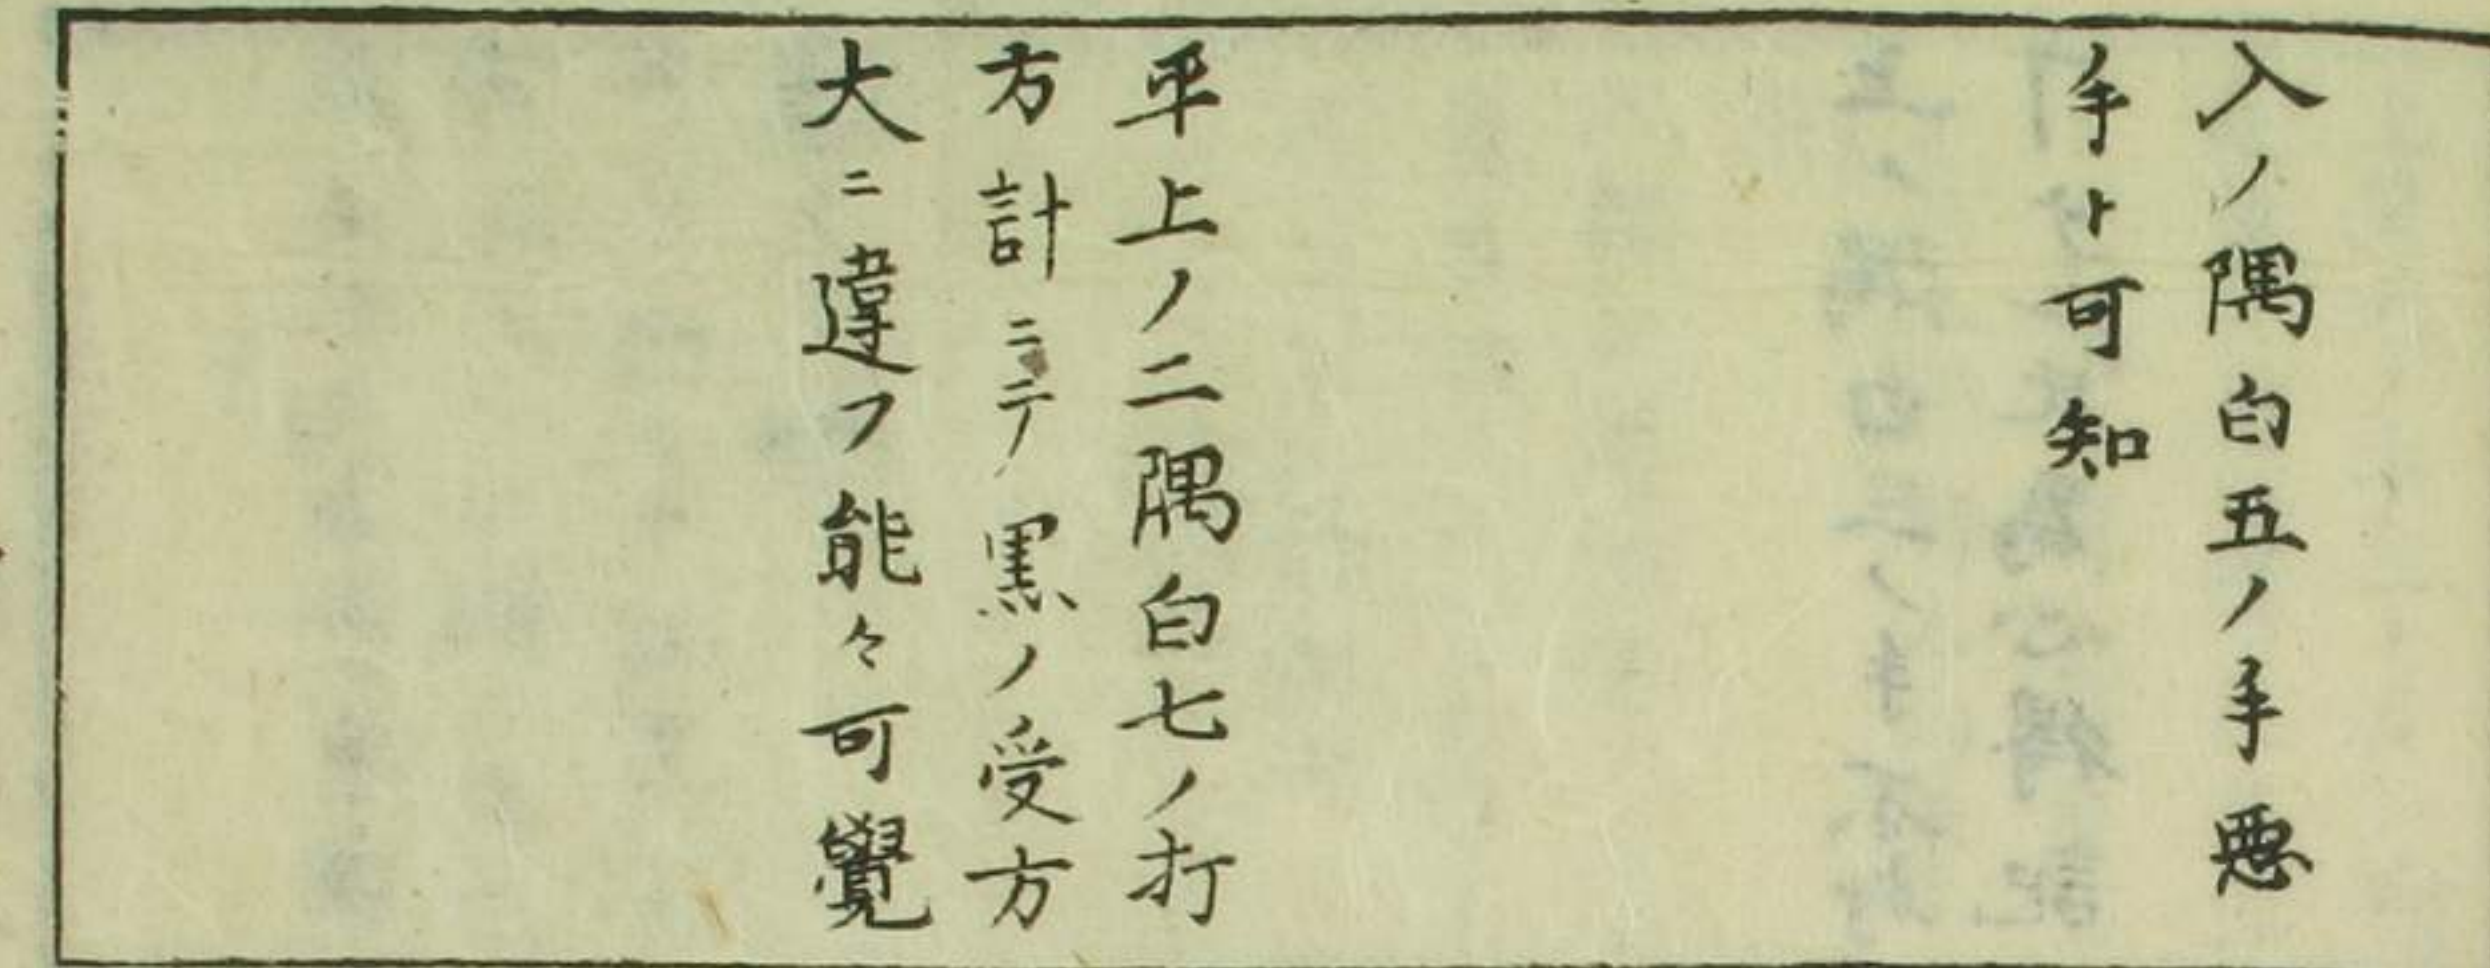 入ノ隅白五ノ手悪
手ト可知
平上ノ二隅白七ノ打
方計ニテ黒ノ受方
大ニ違フ能々可覺